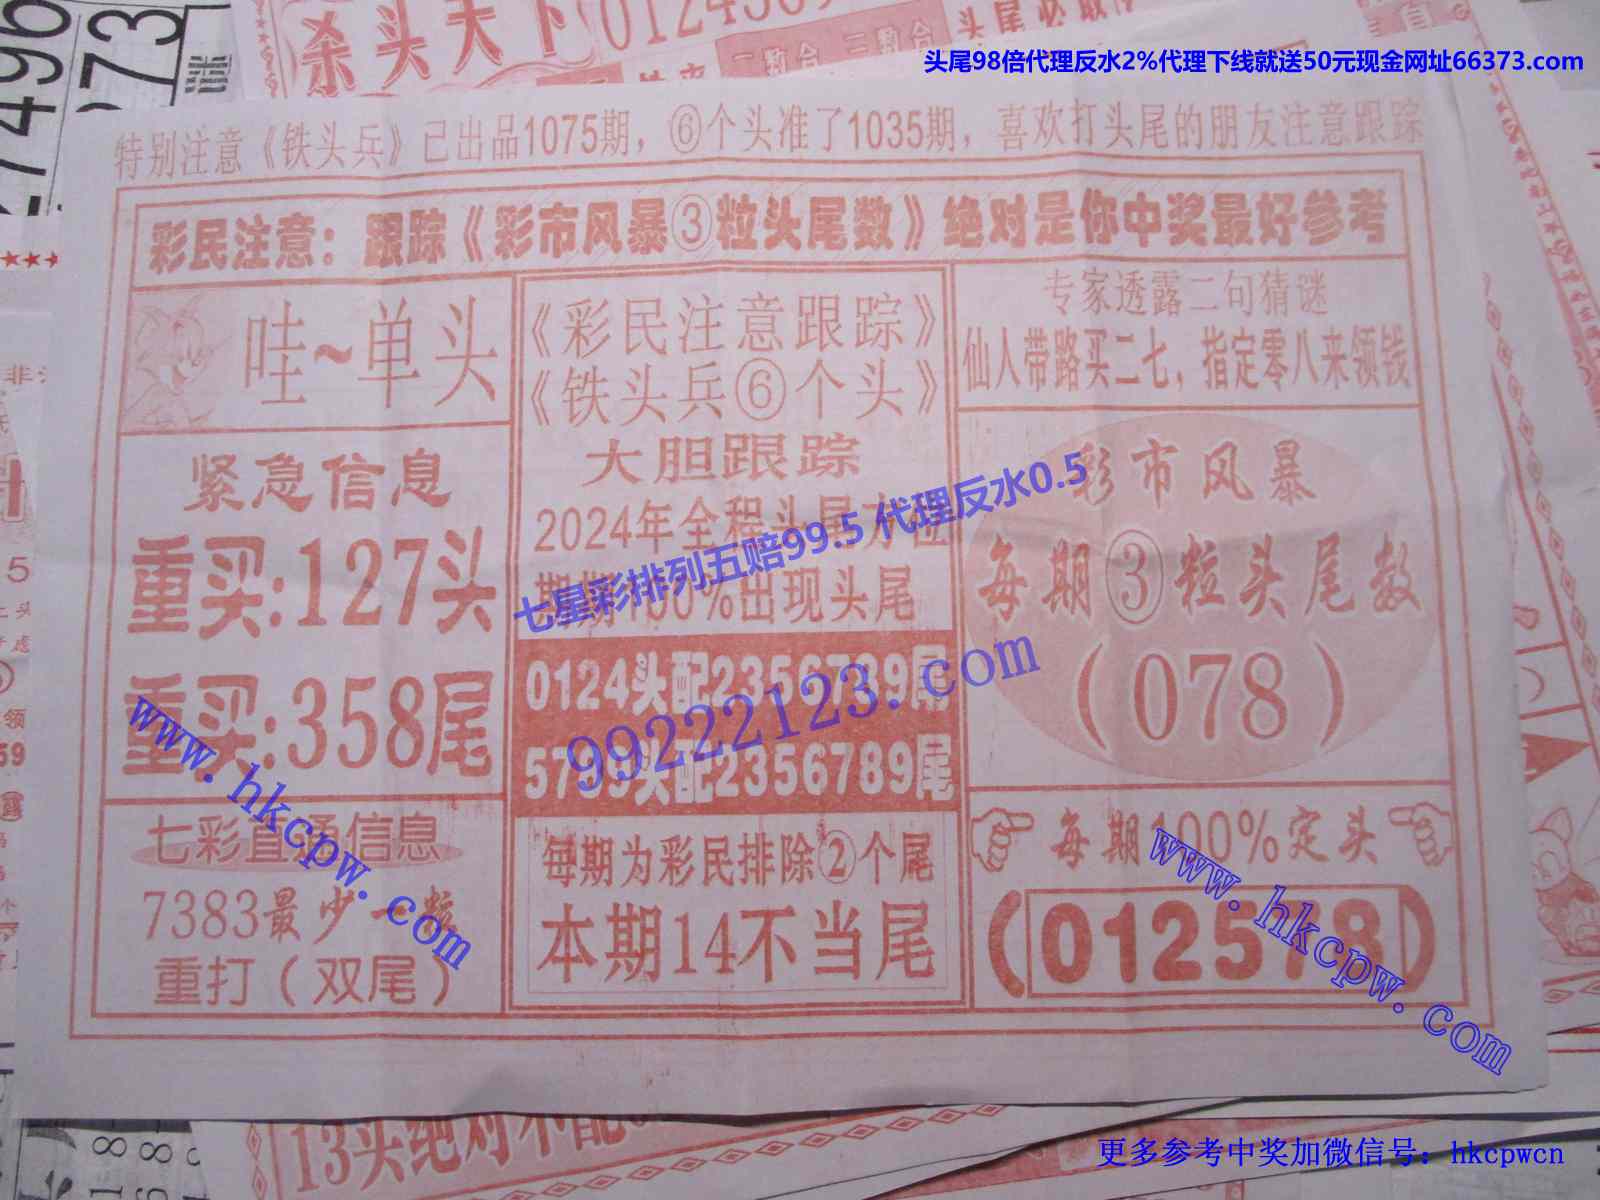 杀头天下
头尾98倍代理反水2%代理下线就送50元现金网址66373.com
特别注意《铁头兵》已出品1075期，⑥个头准了1035期，喜欢打头尾的朋友注意跟踪
彩民注意：跟踪《彩市风暴③粒头尾数》绝对是你中奖最好参考
哇~单头
紧急信息
重买:127头
重买:358尾
七彩直通信息
7383最少一枚
重打（双尾）
《彩民注意跟踪》
《铁头兵⑥个头》
大胆跟踪
2024年全程头尾方位
期期100%出现头尾
0124头配2356789尾
5789头配2356789尾
每期为彩民排除②个尾
本期14不当尾
专家透露二句猜谜
仙人带路买二七，指定零八来领钱
彩市风暴
每期③粒头尾数
（078）
每期100%定头
（012578）
七星彩排列五赔99.5 代理反水0.5
99222123.com
www.hkcpw.com
www.hkcpw.com
13头绝对不配
更多参考中奖加微信号：hkcpwcn